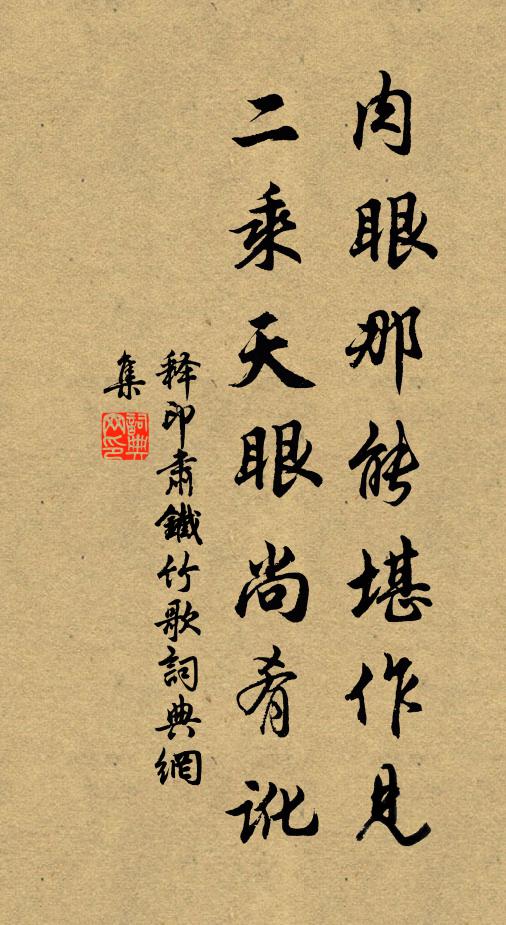 肉眼那能堪作見
二乘天眼尚肴訛
释印肅鐵竹歌詞典網
集
詞典網印